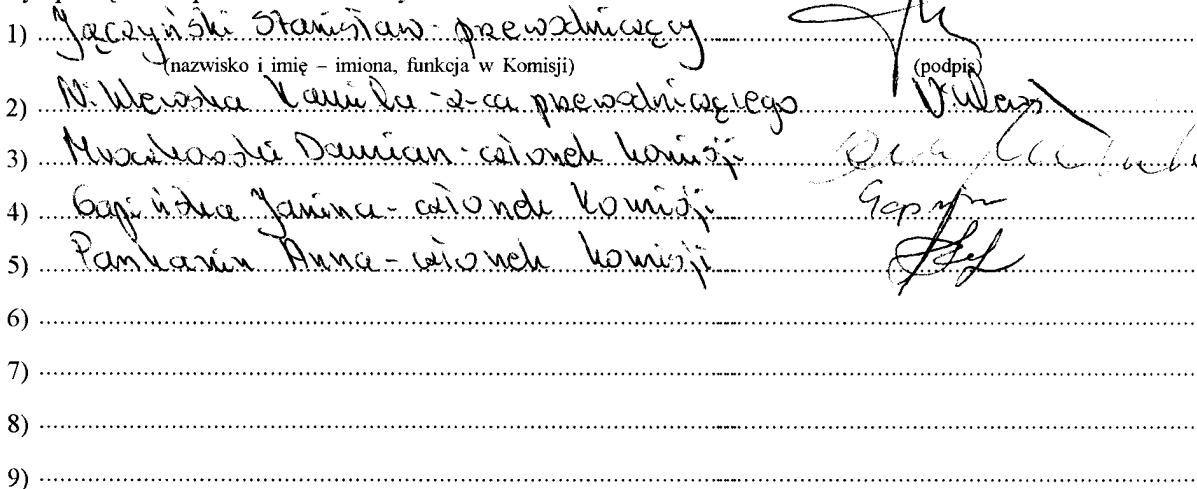 1) Jączyński Stanisław - przewodniczący
(nazwisko i imię – imiona, funkcja w Komisji) (podpis)
2) Kamila - z-ca przewodniczącego
3) Mroczkowski Damian - członek komisji
4) Gapińska Janina - członek Komisji
5) Pankanin Anna - członek komisji
6)
7)
8)
9)